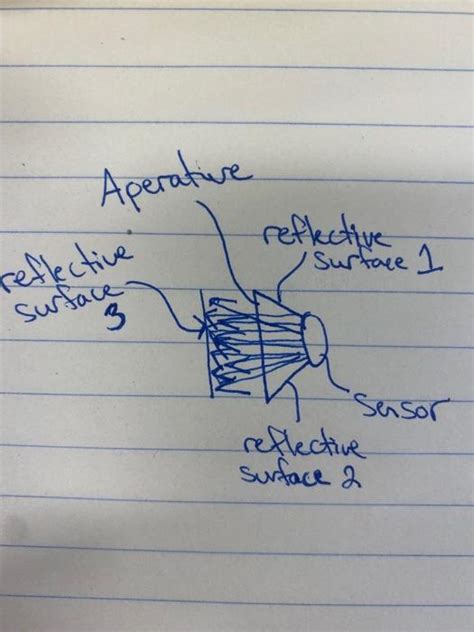 Aperative
reflective
surface 1
reflective
surface
3
sensor
reflective
surface 2